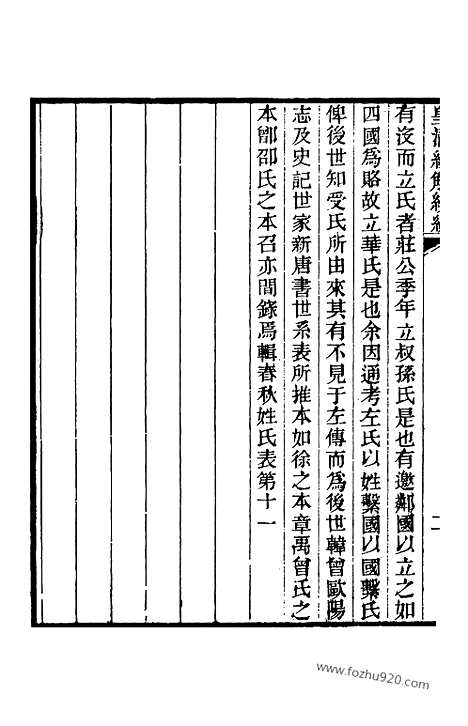 皇清經解續編
二
有沒而立氏者莊公季年立叔孫氏是也有邀鄰國以立之如
四國爲賂故立華氏是也余因通考左氏以姓繫國以國繫氏
俾後世知受氏所由來其有不見于左傳而爲後世韓曾歐陽
志及史記世家新唐書世系表所推本如徐之本章禹曾氏之
本鄫邵氏之本召亦間錄焉輯春秋姓氏表第十一
www.fozhu920.com